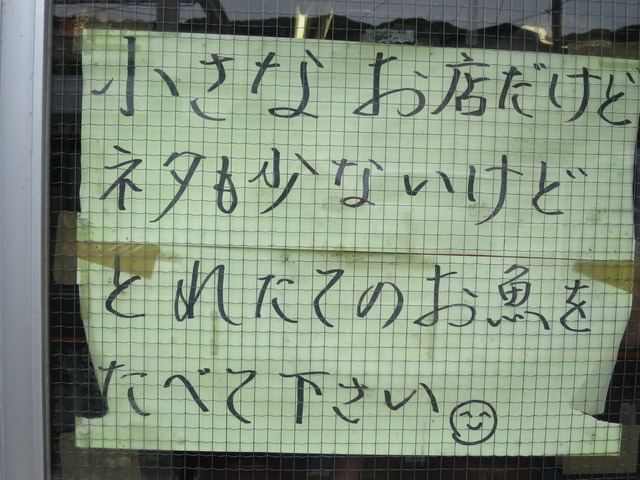 小さなお店だけど
ネタも少ないけど
とれたてのお魚を
たべて下さい